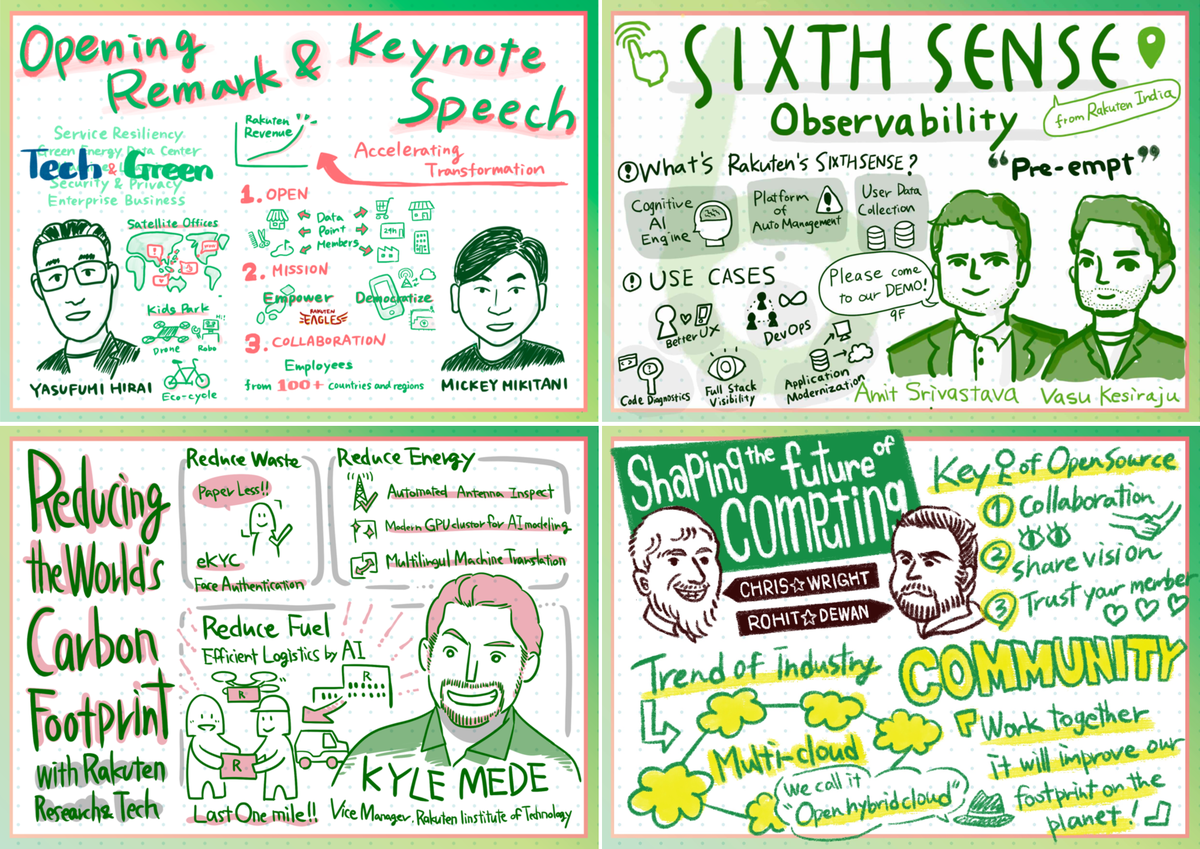 Opening
Remark & Keynote
Speech
Service Resiliency
Green Energy Data Center
Tech & Green
Security & Privacy
Enterprise Business
Satellite Offices
Kids Park
Drone Robo
Eco-cycle
YASUFUMI HIRAI
Rakuten
Revenue
Accelerating
Transformation
1. OPEN
Data
Point
Members
24h
2. MISSION
Empower Democratize
RAKUTEN
EAGLES
3. COLLABORATION
Employees
from 100+ countries and regions
MICKEY MIKITANI
SIXTH SENSE
Observability
from Rakuten India
What's Rakuten's SIXTHSENSE?
"Pre-empt"
Cognitive
AI
Engine
Platform
of
Auto Management
User Data
Collection
USE CASES
Better UX
DevOps
Code Diagnostics
Full Stack
Visibility
Application
Modernization
Please come
to our DEMO!
9F
Amit Srivastava
Vasu Kesiraju
Reducing
the World's
Carbon
Footprint
with Rakuten
Research & Tech
Reduce Waste
Paper Less!!
eKYC
Face Authentication
Reduce Energy
Automated Antenna Inspect
Modern GPU clustor for AI modeling
Multilingul Machine Translation
Reduce Fuel
Efficient Logistics by AI
R
R
R
Last One mile!!
KYLE MEDE
Vice Manager, Rakuten Iinstitute of Technology
Shaping the future of
COMPUTING
CHRIS☆WRIGHT
ROHIT☆DEWAN
Key of OpenSource
1 Collaboration
2 share vision
3 Trust your member
Trend of Industry
Multi-cloud
We call it
"Open hybrid cloud"
COMMUNITY
Work together
it will improve our
footprint on the
planet!